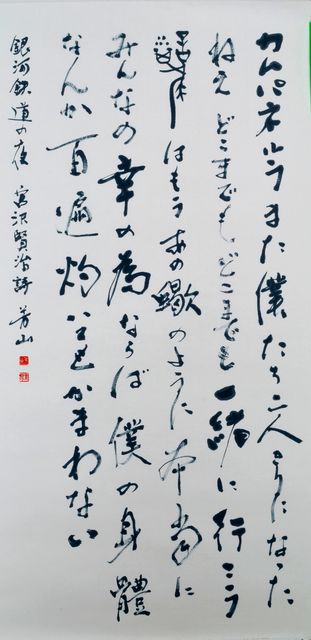 カムパネルラまた僕たち二人きりになった
ねえどこまでもどこまでも一緒に行こう
僕はもうあの蠍のように本当に
みんなの幸の為ならば僕の身體
なんか百遍灼いてもかまわない
銀河鉄道の夜 宮沢賢治詩 芳山